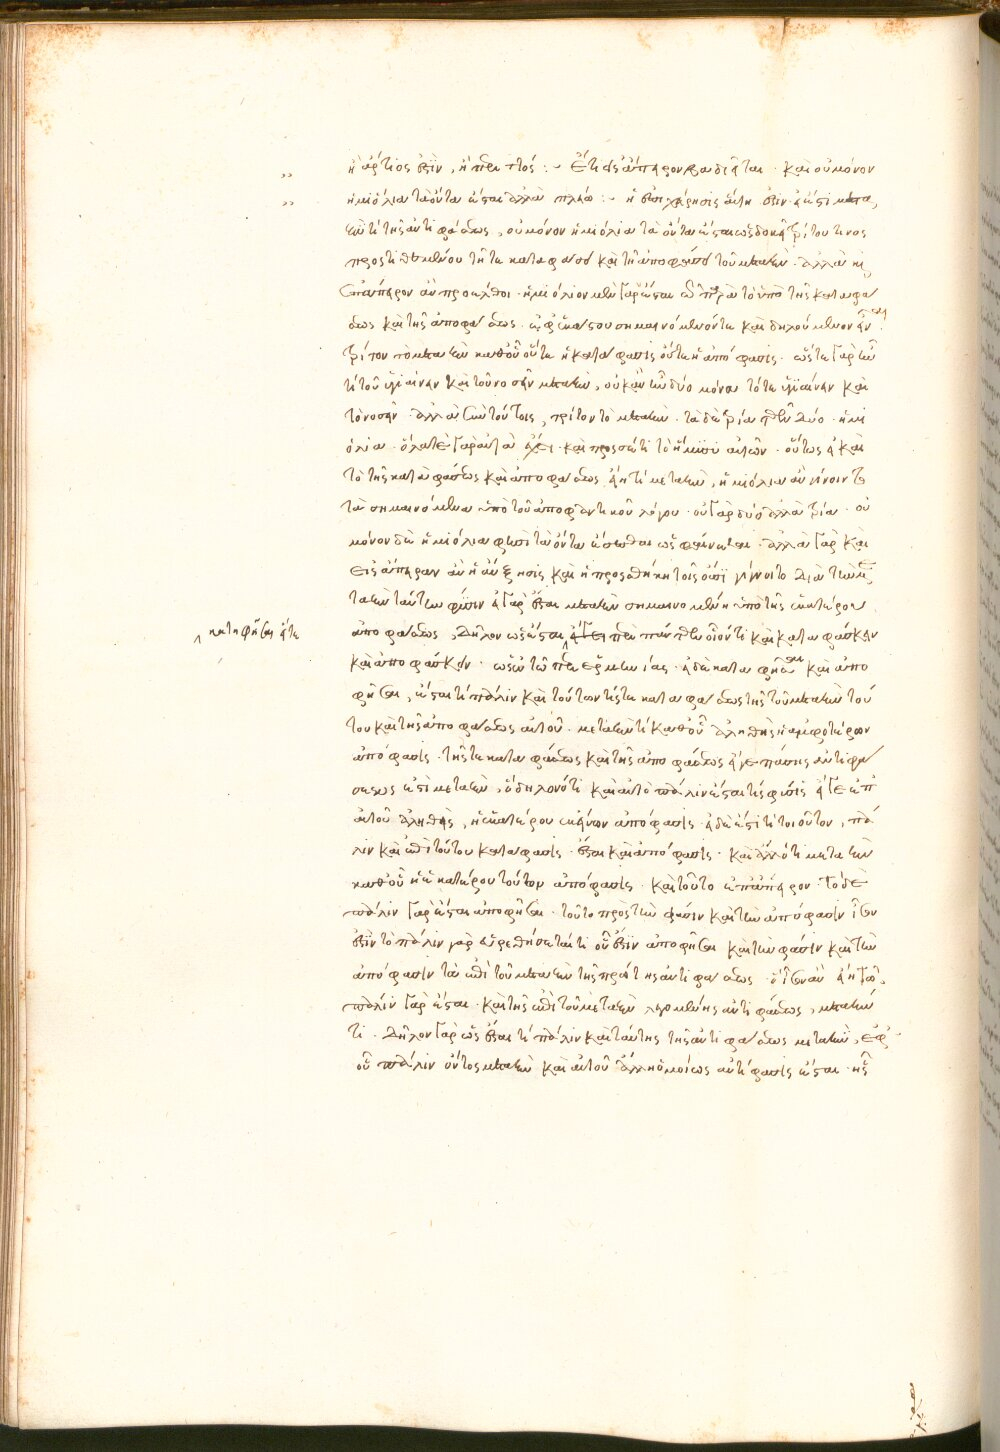 ἢ ἄρτιός ἐστιν, ἢ περιττός :~ Ἔτι εἰς ἄπειρον βαδιεῖται · καὶ οὐ μόνον
ἡμιόλια τὰ ὄντα ἔσται ἀλλὰ πλείω :~ ἡ ἐπιχείρησις αὕτη ἐστίν · εἰ ἔστι μετα
ξύ τι τῆς ἀντιφάσεως, οὐ μόνον ἡμιόλια τὰ ὄντα ἔσται ὡς δοκεῖ τρίτου τινος
προστιθεμένου τῆ τε καταφάσει καὶ τῆ ἀποφάσει τοῦ μεταξύ · ἀλλὰ
ἐπ' ἄπειρον ἂν προέλθοι · ἡμιόλιον μὲν γὰρ ἔσται παρὰ τὸ ὑπὸ τῆς καταφά
σεως καὶ τῆς ἀποφάσεως · ἐφ' ἑκάστου σημαινόμενόν τε καὶ δηλούμενον
τρίτον τὸ μεταξὺ καθ' οὗ οὔτε ἡ κατάφασις οὔτε ἡ ἀπόφασις · ὥστε γὰρ
τι τοῦ ὑγιαίνειν καὶ τοῦ νοσεῖν μεταξύ, οὐκ ἂν εἴη δύο μόνον τό τε ὑγιαίνειν καὶ
τὸ νοσεῖν · ἀλλὰ σὺν τούτοις, τρίτον τὸ μεταξύ · τὰ δὲ τρία τῶν δύο · ἡμι
όλια · ὅλα τε γὰρ αὐτὰ ἔχει · καὶ προσέτι τὸ ἥμισυ αὐτῶν · οὕτως εἰ καὶ
τὸ τῆς καταφάσεως καὶ ἀποφάσεως εἴη τι μεταξύ, ἡμιόλια ἂν γίνοιντο
τὰ σημαινόμενα ὑπὸ τοῦ ἀποφαντικοῦ λόγου · οὐ γὰρ δύο ἀλλὰ τρία · οὐ
μόνον δὲ ἡμιόλια φησὶ τὰ ὄντα ἔσεσθαι ὡς φαίνεται · ἀλλὰ γὰρ καὶ
εἰς ἄπειρον ἂν ἡ αὔξησις καὶ ἡ προσθήκη τοῖς οὖσι γίνοιτο διὰ τὴν τοῦ με
ταξὺ ταύτην φύσιν εἰ γὰρ ἔσται μεταξὺ σημαινομένη ὑπὸ τῆς ἑκατέρου
ἀποφάσεως, δῆλον ὡς ἔσται περὶ πάντων οἷόν τι καὶ καταφάσκειν
καὶ ἀποφάσκειν · ὡς ἐν τῶ περὶ ἑρμηνείας · εἰ δὲ καταφῆσαι καὶ ἀπο
φῆσαι, ἔσται τι πάλιν καὶ τούτων τῆς τε καταφάσεως τῆς τοῦ μεταξὺ τού
του καὶ τῆς ἀποφάσεως αὐτοῦ · μεταξύ τι καθ' οὗ ἀληθὴς ἡ ἀμφοτέρων
ἀπόφασις · τῆς τε καταφάσεως καὶ τῆς ἀποφάσεως εἴγε πάσης ἀντιφά
σεως ἐστὶ μεταξύ, ὃ δηλονότι καὶ αὐτὸ πάλιν ἔσται τις φύσις εἴγε ἐπ'
αὐτοῦ ἀληθής, ἡ ἑκατέρου ἐκείνων ἀπόφασις · εἰ δὲ ἐστί τι τοιοῦτον, πά
λιν καὶ ἐπὶ τούτου κατάφασις · ἔσται καὶ ἀπόφασις · καὶ ἄλλό τι μεταξὺ
καθ' οὗ ἡ ἑκατέρου τούτων ἀπόφασις · καὶ τοῦτο ἐπ' ἄπειρον · Τὸ δὲ
πάλιν γὰρ ἔσται ἀποφῆσαι · τοῦτο πρὸς τὴν φάσιν καὶ τὴν ἀπόφασιν ἴσον
ἐστὶν τὸ πάλιν γὰρ εὑρεθήσεταί τι οὗ ἐστὶν ἀποφῆσαι καὶ τὴν φάσιν καὶ τὴν
ἀπόφασιν τὰ ἐπὶ τοῦ μεταξὺ τῆς πρώτης ἀντιφάσεως ·
πάλιν γὰρ ἔσται · καὶ τῆς ἐπὶ τοῦ μεταξὺ λεγομένης ἀντιφάσεως, μεταξύ
τι · Δῆλον γὰρ ὡς ἔσται τι πάλιν καὶ ταύτης τῆς ἀντιφάσεως μεταξύ, ἐφ'
οὗ πάλιν ὄντος μεταξὺ καὶ αὐτοῦ ἄλλη ὁμοίως ἀντίφασις ἔσται · ἧς
καταφῆσαι εἴτε